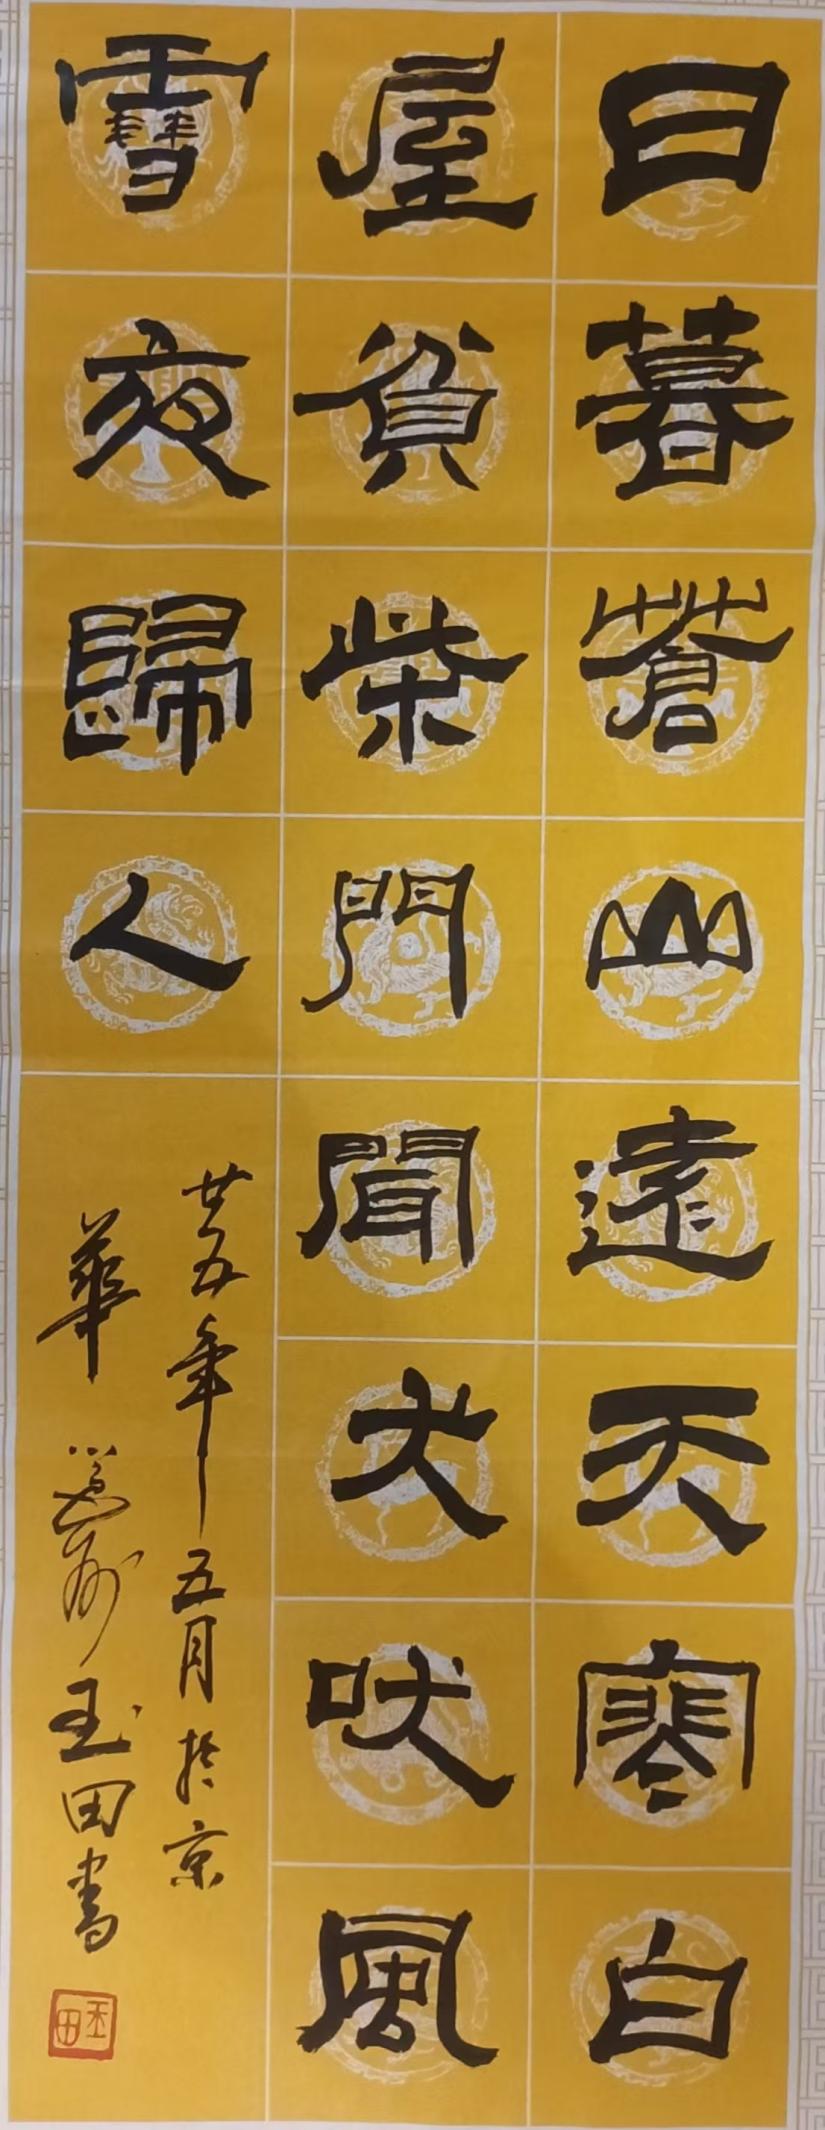 日暮蒼山遠天寒白
屋貧柴門聞犬吠風
雪夜歸人
廿五年五月於京
華 玉田書
玉田